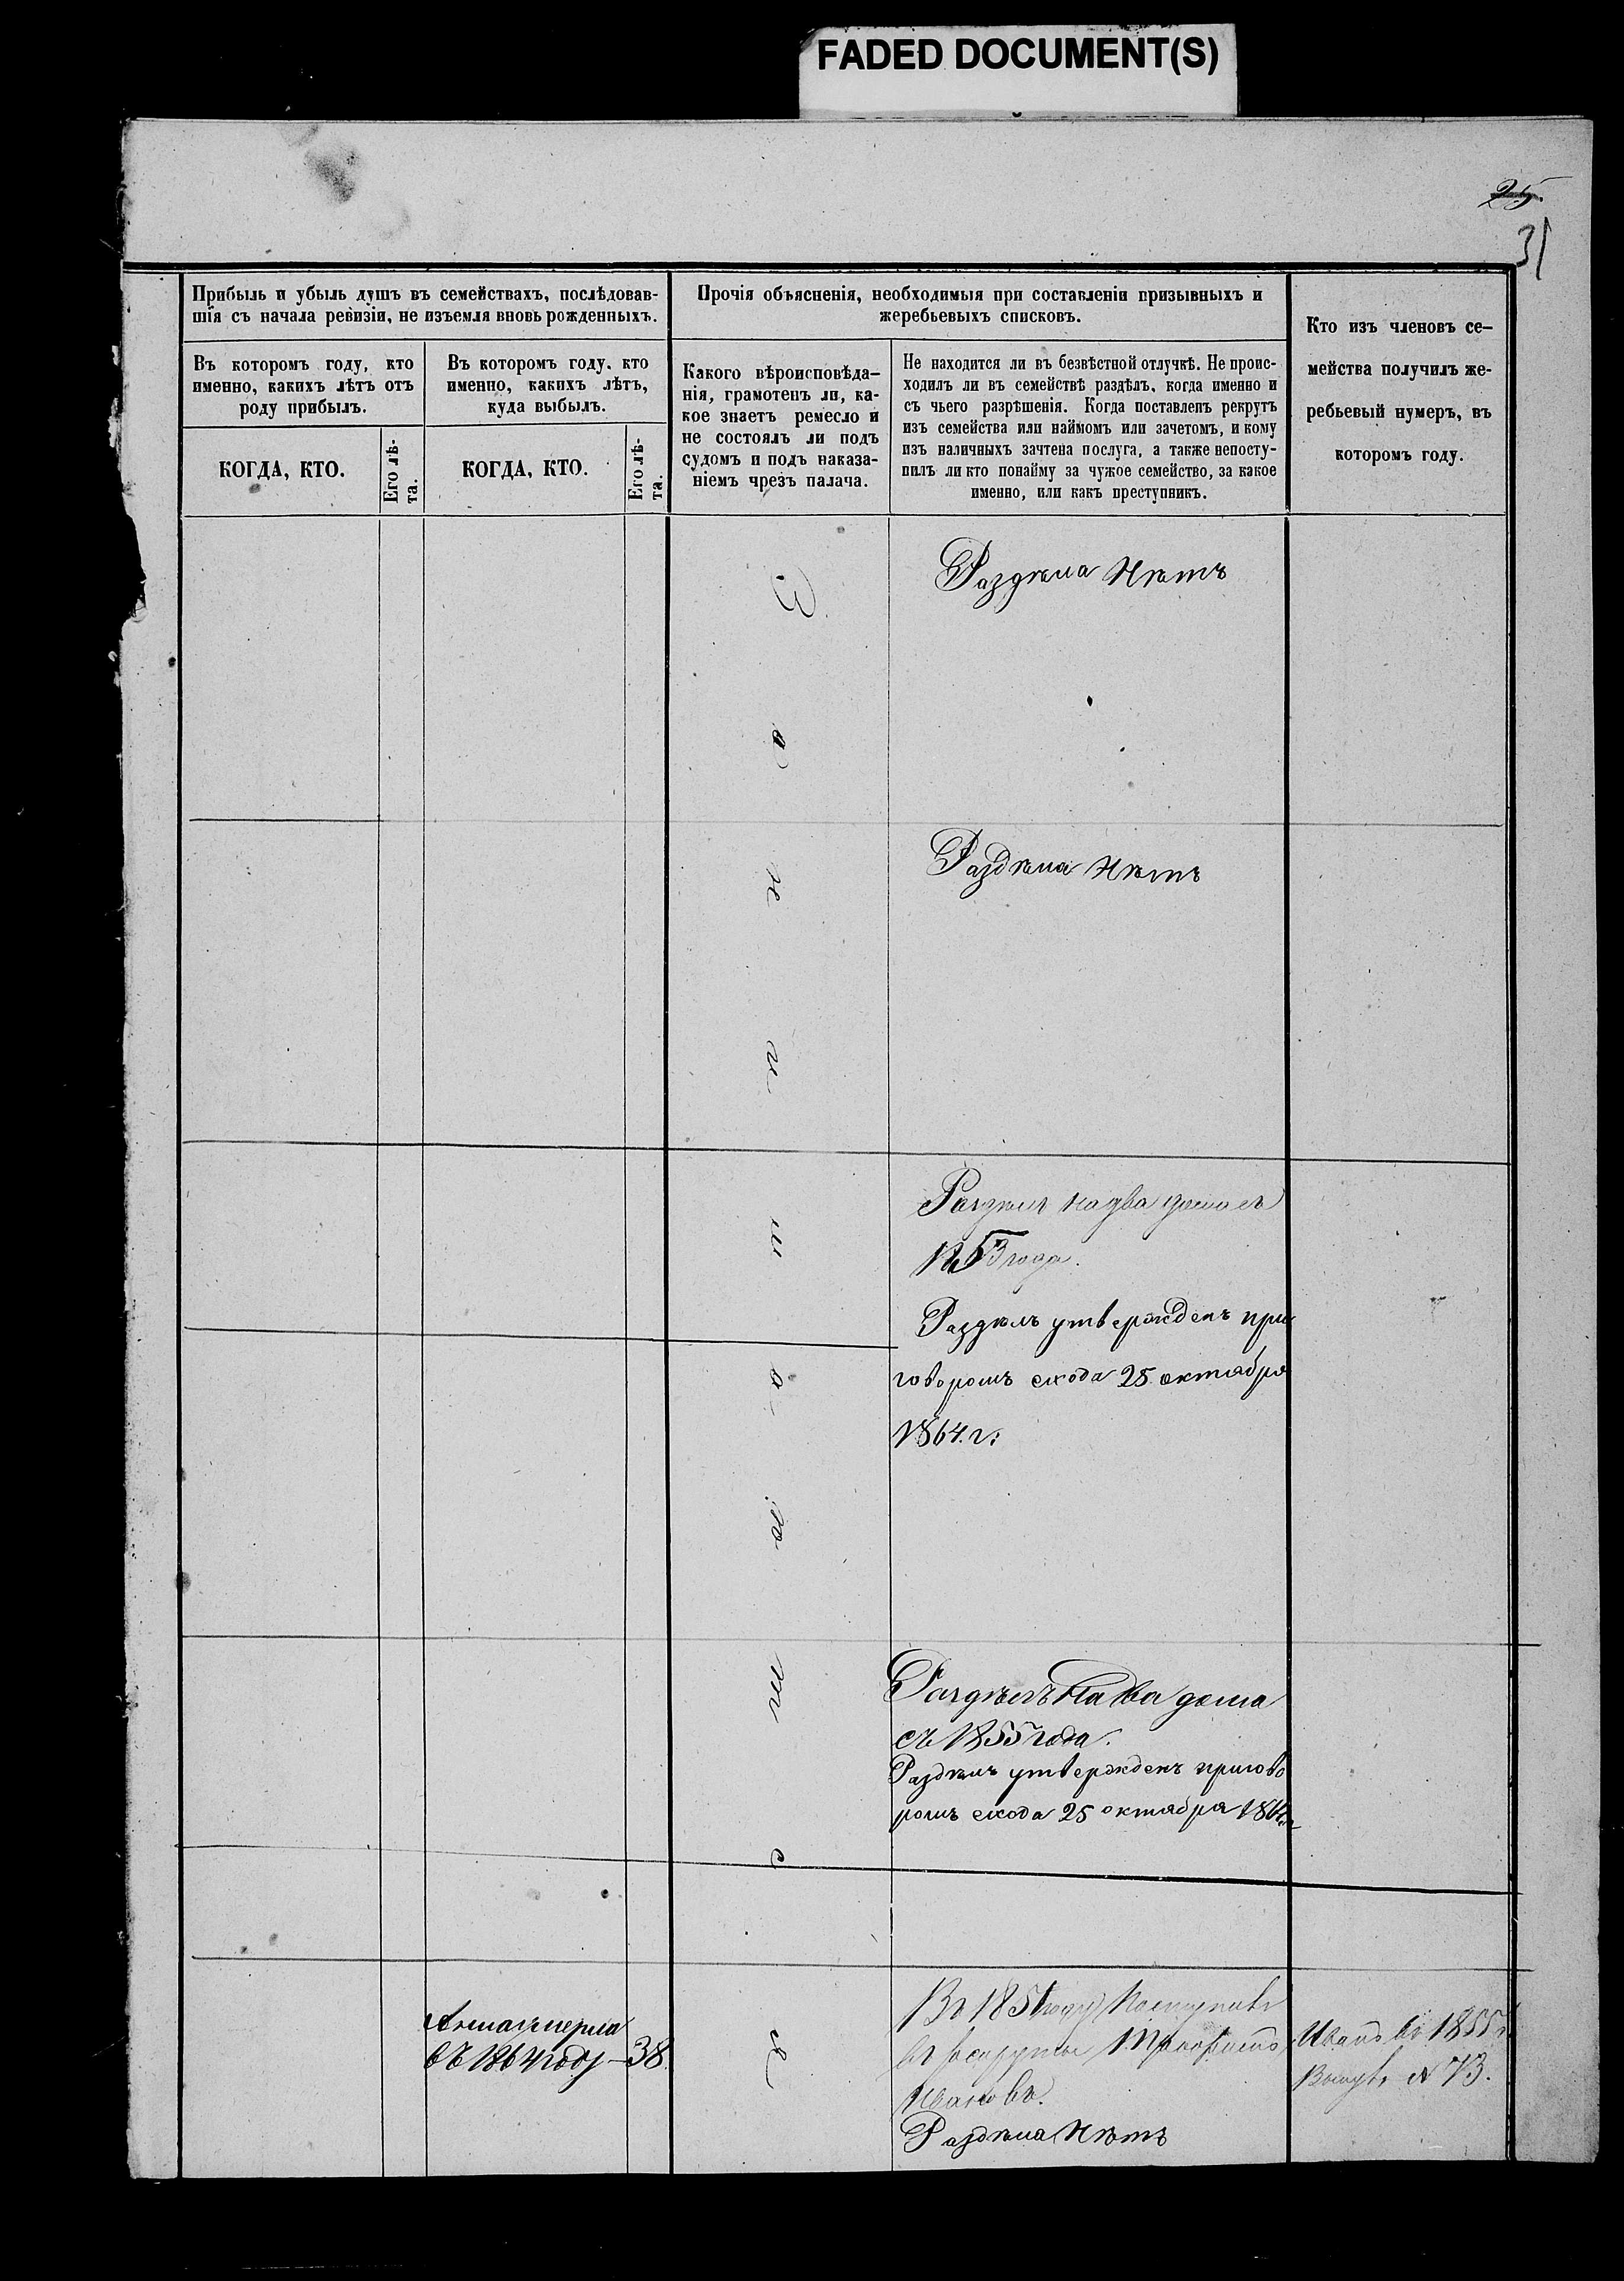 FADED DOCUMENT(S)
25.
31
Прибыль и убыль душъ въ семействахъ, послѣдовав-
шія съ начала ревизіи, не изъемля вновь рожденныхъ.
Въ которомъ году, кто
именно, какихъ лѣтъ отъ
роду прибылъ.
КОГДА, КТО.
Его лѣ-
та.
Въ которомъ году, кто
именно, какихъ лѣтъ,
куда выбылъ.
КОГДА, КТО.
Его лѣ-
та.
Прочія объясненія, необходимыя при составленіи призывныхъ и
жеребьевыхъ списковъ.
Какого вѣроисповѣда-
нія, грамотенъ ли, ка-
кое знаетъ ремесло и
не состоялъ ли подъ
судомъ и подъ наказа-
ніемъ чрезъ палача.
Не находится ли въ безвѣстной отлучкѣ. Не проис-
ходилъ ли въ семействѣ раздѣлъ, когда именно и
съ чьего разрѣшенія. Когда поставленъ рекрутъ
изъ семейства или наймомъ или зачетомъ, и кому
изъ наличныхъ зачтена послуга, а также непосту-
пилъ ли кто понайму за чужое семейство, за какое
именно, или какъ преступникъ.
Кто изъ членовъ се-
мейства получилъ же-
ребьевый нумеръ, въ
которомъ году.
Раздѣла Нѣтъ
Раздѣла Нѣтъ
Раздѣлъ на два дома съ
1853 года.
Раздѣлъ утвержденъ при
говоромъ схода 25 октября
1864. г:
Раздѣлъ На два дома
съ 1855 года.
Раздѣлъ утвержденъ пригово
ромъ схода 25 октября 1864 г
умерла
въ 1864 году — 38
Въ 1851 году Поступилъ
въ рекруты
Ивановъ.
Раздѣла Нѣтъ
Иванъ въ 1855 г.
№ 73.